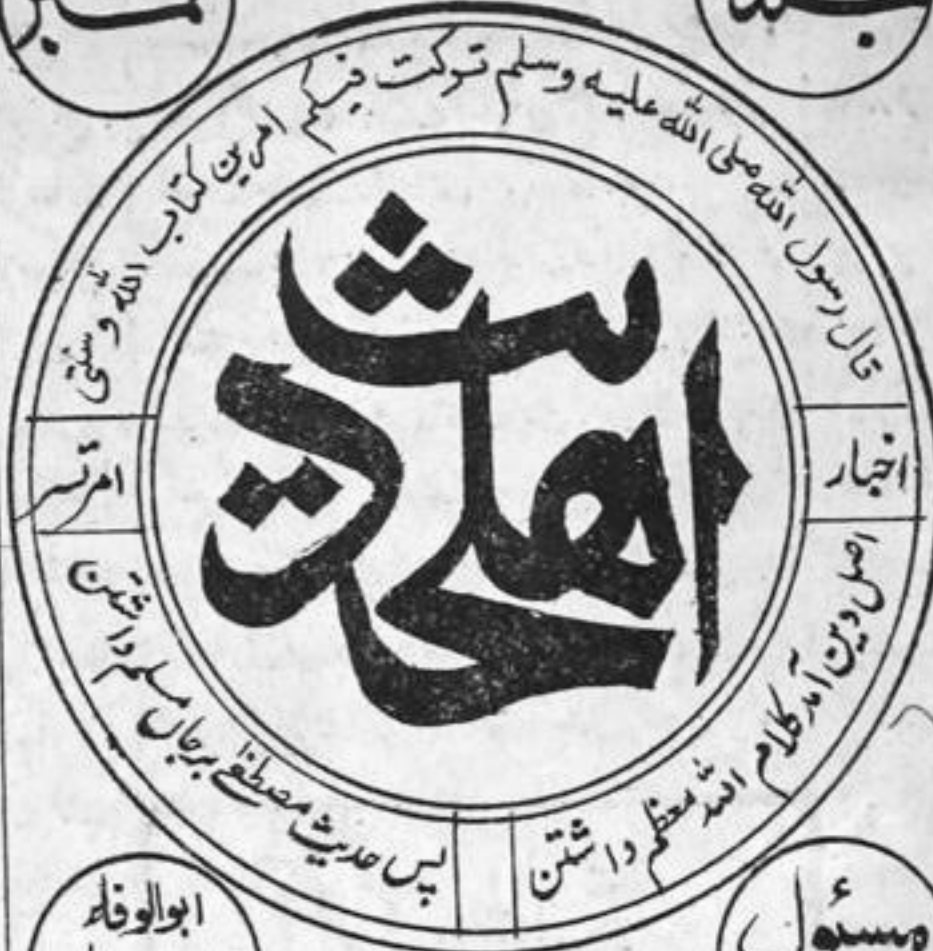 جلد
نمبر
قال رسول الله صلی الله علیه وسلم ترکت فیکم امرین کتاب الله وسنتی
اخبار
اهلحدیث
امرتسر
اصل دین آمد کلام الله معظم داشتن
پس حدیث مصطفےٰ برجاں مسلم داشتن
مسئول
ابوالوفاء